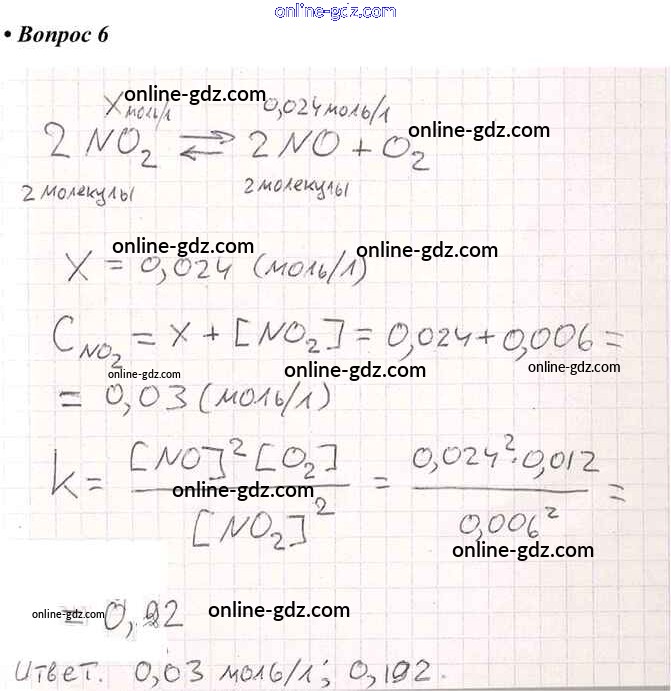 online-gdz.com
• Вопрос 6
X моль/л online-gdz.com 0,024 моль/л
2 NO₂ ⇄ 2 NO + O₂ online-gdz.com
2 молекулы 2 молекулы
online-gdz.com online-gdz.com
X = 0,024 (моль/л)
C NO₂ = X + [NO₂] = 0,024 + 0,006 =
online-gdz.com online-gdz.com online-gdz.com
= 0,03 (моль/л)
K = [NO]² [O₂] / [NO₂]² = 0,024² · 0,012 / 0,006² =
online-gdz.com
online-gdz.com
online-gdz.com = 0,192 online-gdz.com
Ответ. 0,03 моль/л; 0,192.